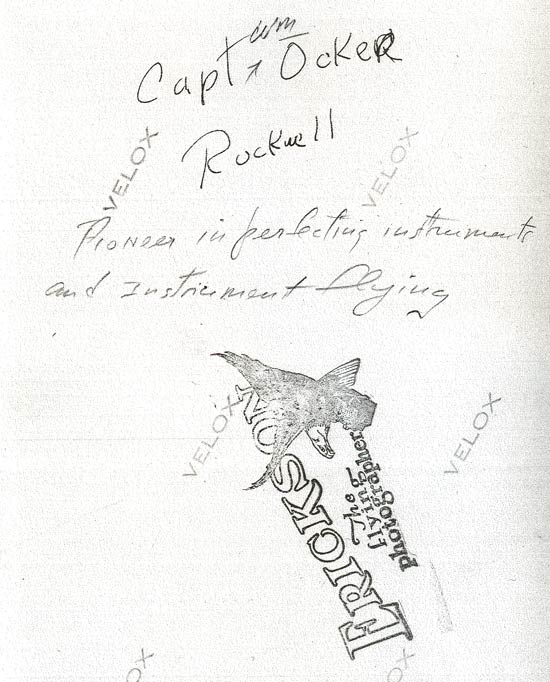 Capt Wm Ocker
Rockwell
VELOX
VELOX
Pioneer in perfecting instruments
and Instrument flying
VELOX
VELOX
ERICKSON
The
flying
photographer
OX
OX